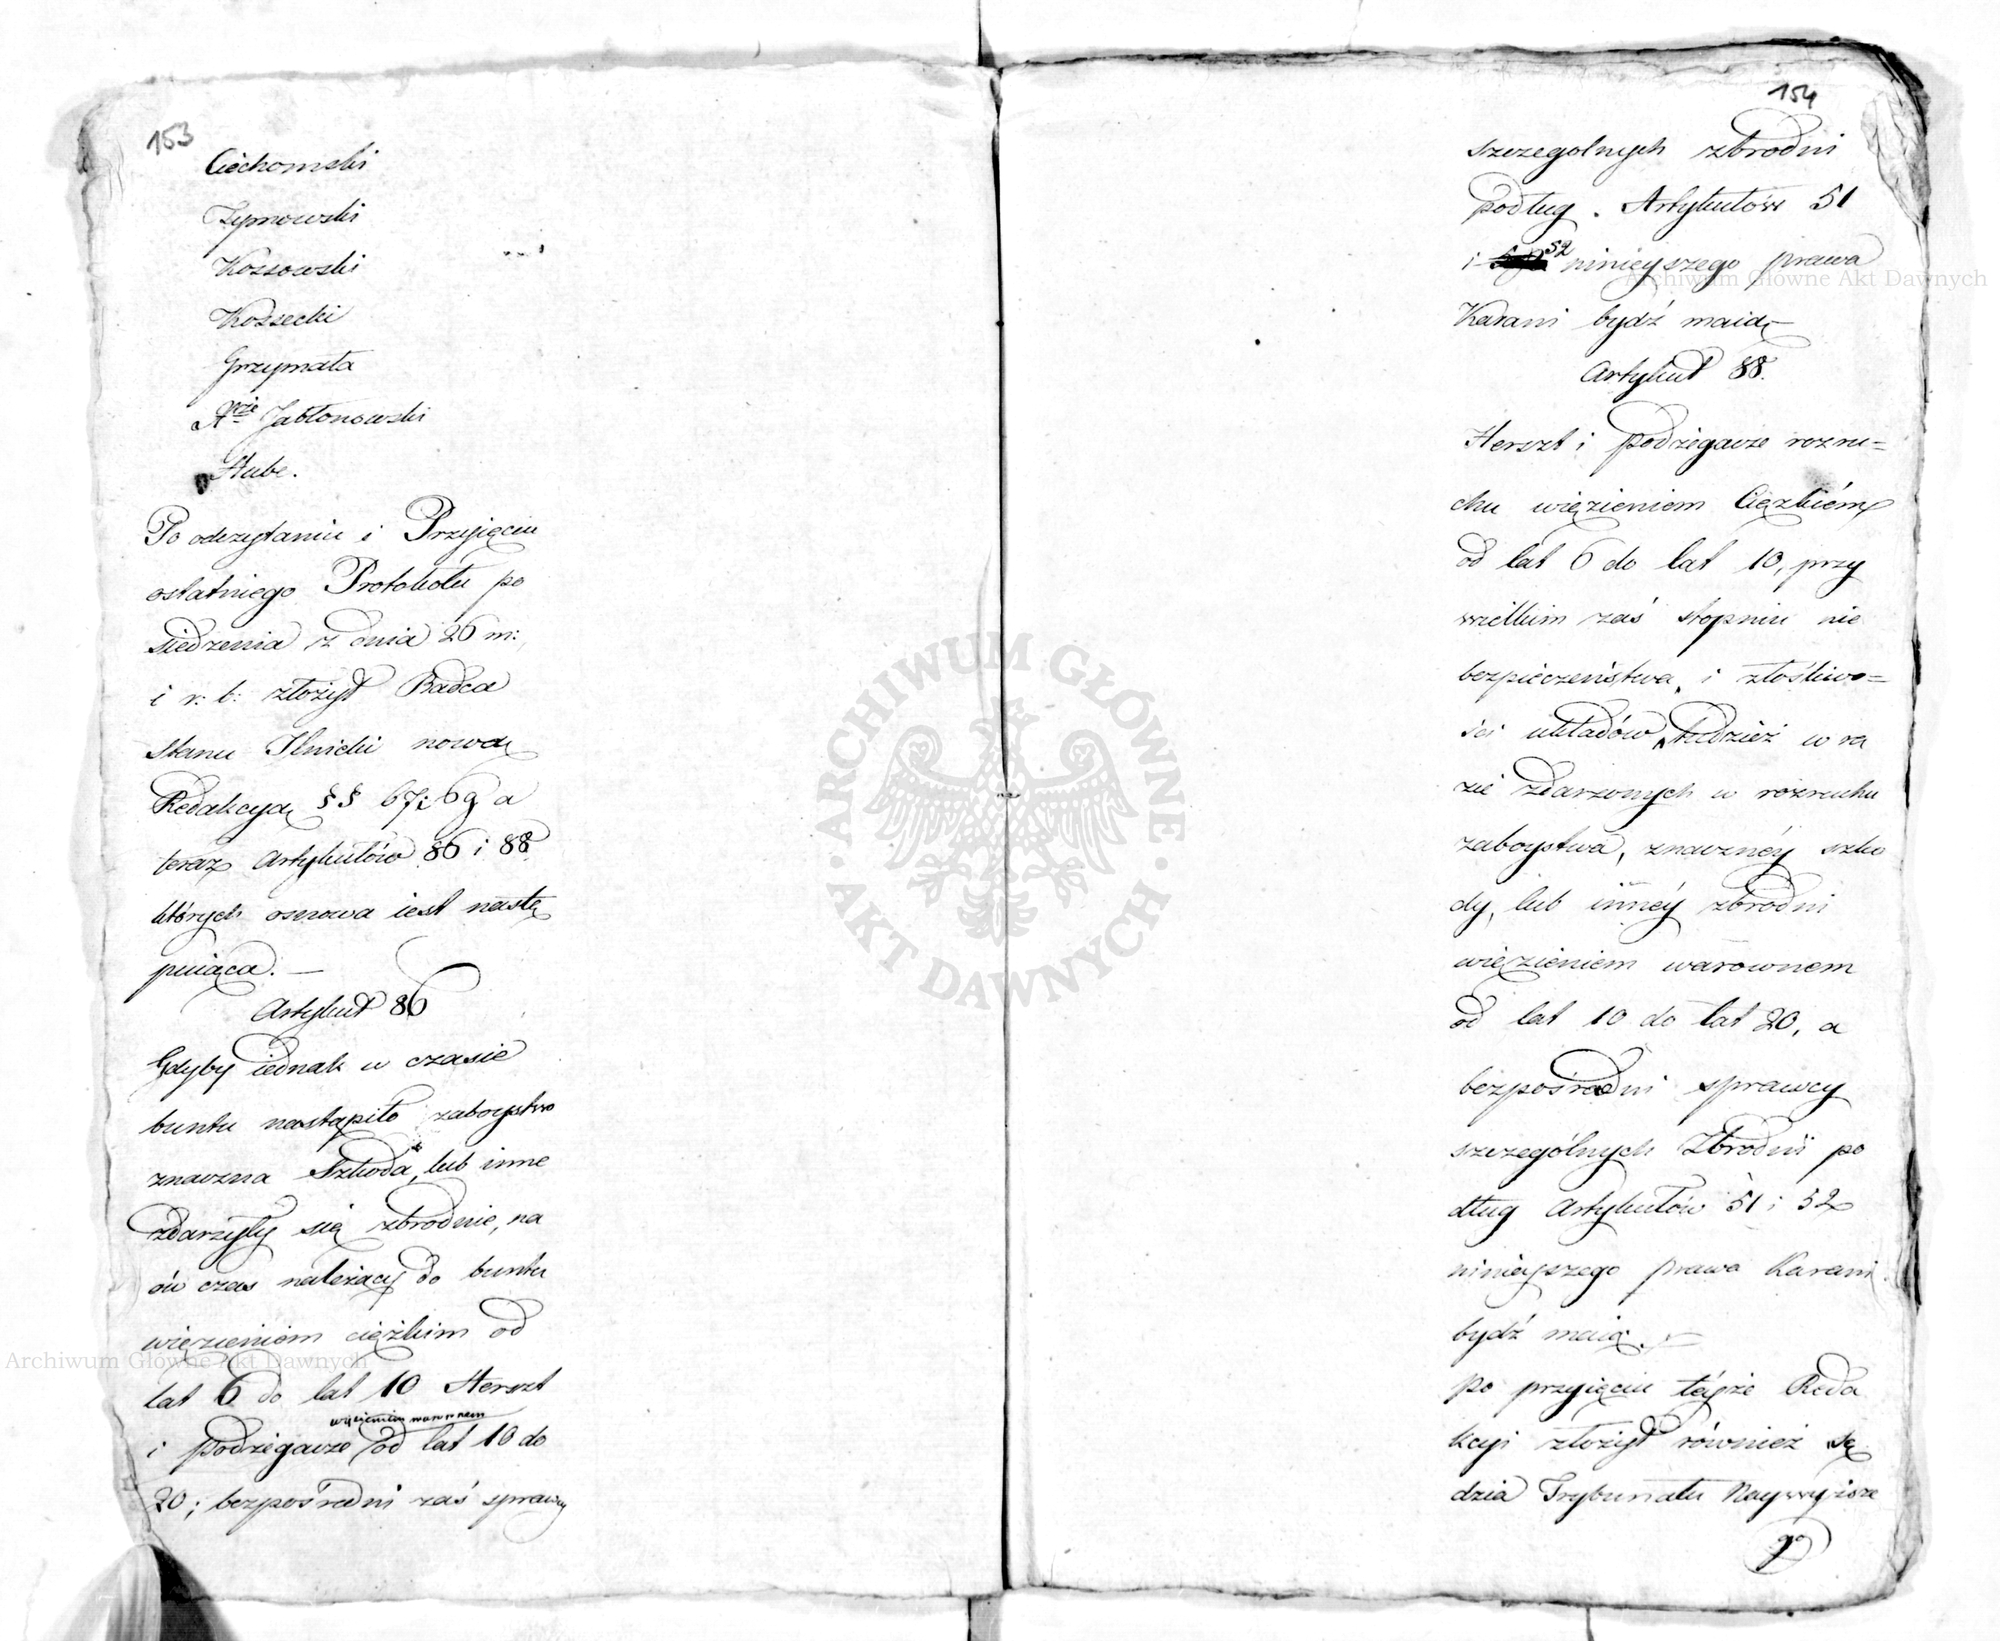 153
Ciechomski
Zymowski
Kossowski
Kozsecki
Grzymała
Xże Jabłonowski
Hube.
Po odczytaniu i Przyięciu
ostatniego Protokołu po
siedzenia z dnia 26 m:
i r: b: złożył Radca
Stanu Ilnicki nową
Redakcyą §§ 67 i 69 a
teraz Artykułów 86 i 88
których osnowa iest nastę
puiąca. —
Artykuł 86
Gdyby iednak w czasie
buntu nastąpiło zaboystwo
znaczna Szkoda, lub inne
zdarzyły się zbrodnie, na
ów czas należący do buntu
więzieniem ciężkim od
lat 6 do lat 10 Herszt
i podżegacze więzieniem warownem od lat 10 do
20; bezpośredni zaś sprawcy
154
szczegolnych zbrodni
podług Artykułów 51
i 52 ninieyszego prawa
Karani bydź maią —
Artykuł 88.
Herszt i podżegacze rozru=
chu więzieniem Ciężkiém
od lat 6 do lat 10, przy
wielkim zaś stopniu nie
bezpieczeństwa, i złośliwo=
ści układów, tudzież w ra
zie zdarzonych w rozruchu
zaboystwa, znacznéy szko
dy, lub innéy zbrodni
więzieniem warownem
od lat 10 do lat 20, a
bezpośredni sprawcy
szczególnych Zbrodni po
dług Artykułów 51 i 52
ninieyszego prawa Karani
bydź maią. —
Po przyięciu téyże Reda
kcyi złożył również Sę
dzia Trybunału Naywyższe
go
ARCHIWUM GŁÓWNE AKT DAWNYCH
Archiwum Główne Akt Dawnych
Archiwum Główne Akt Dawnych